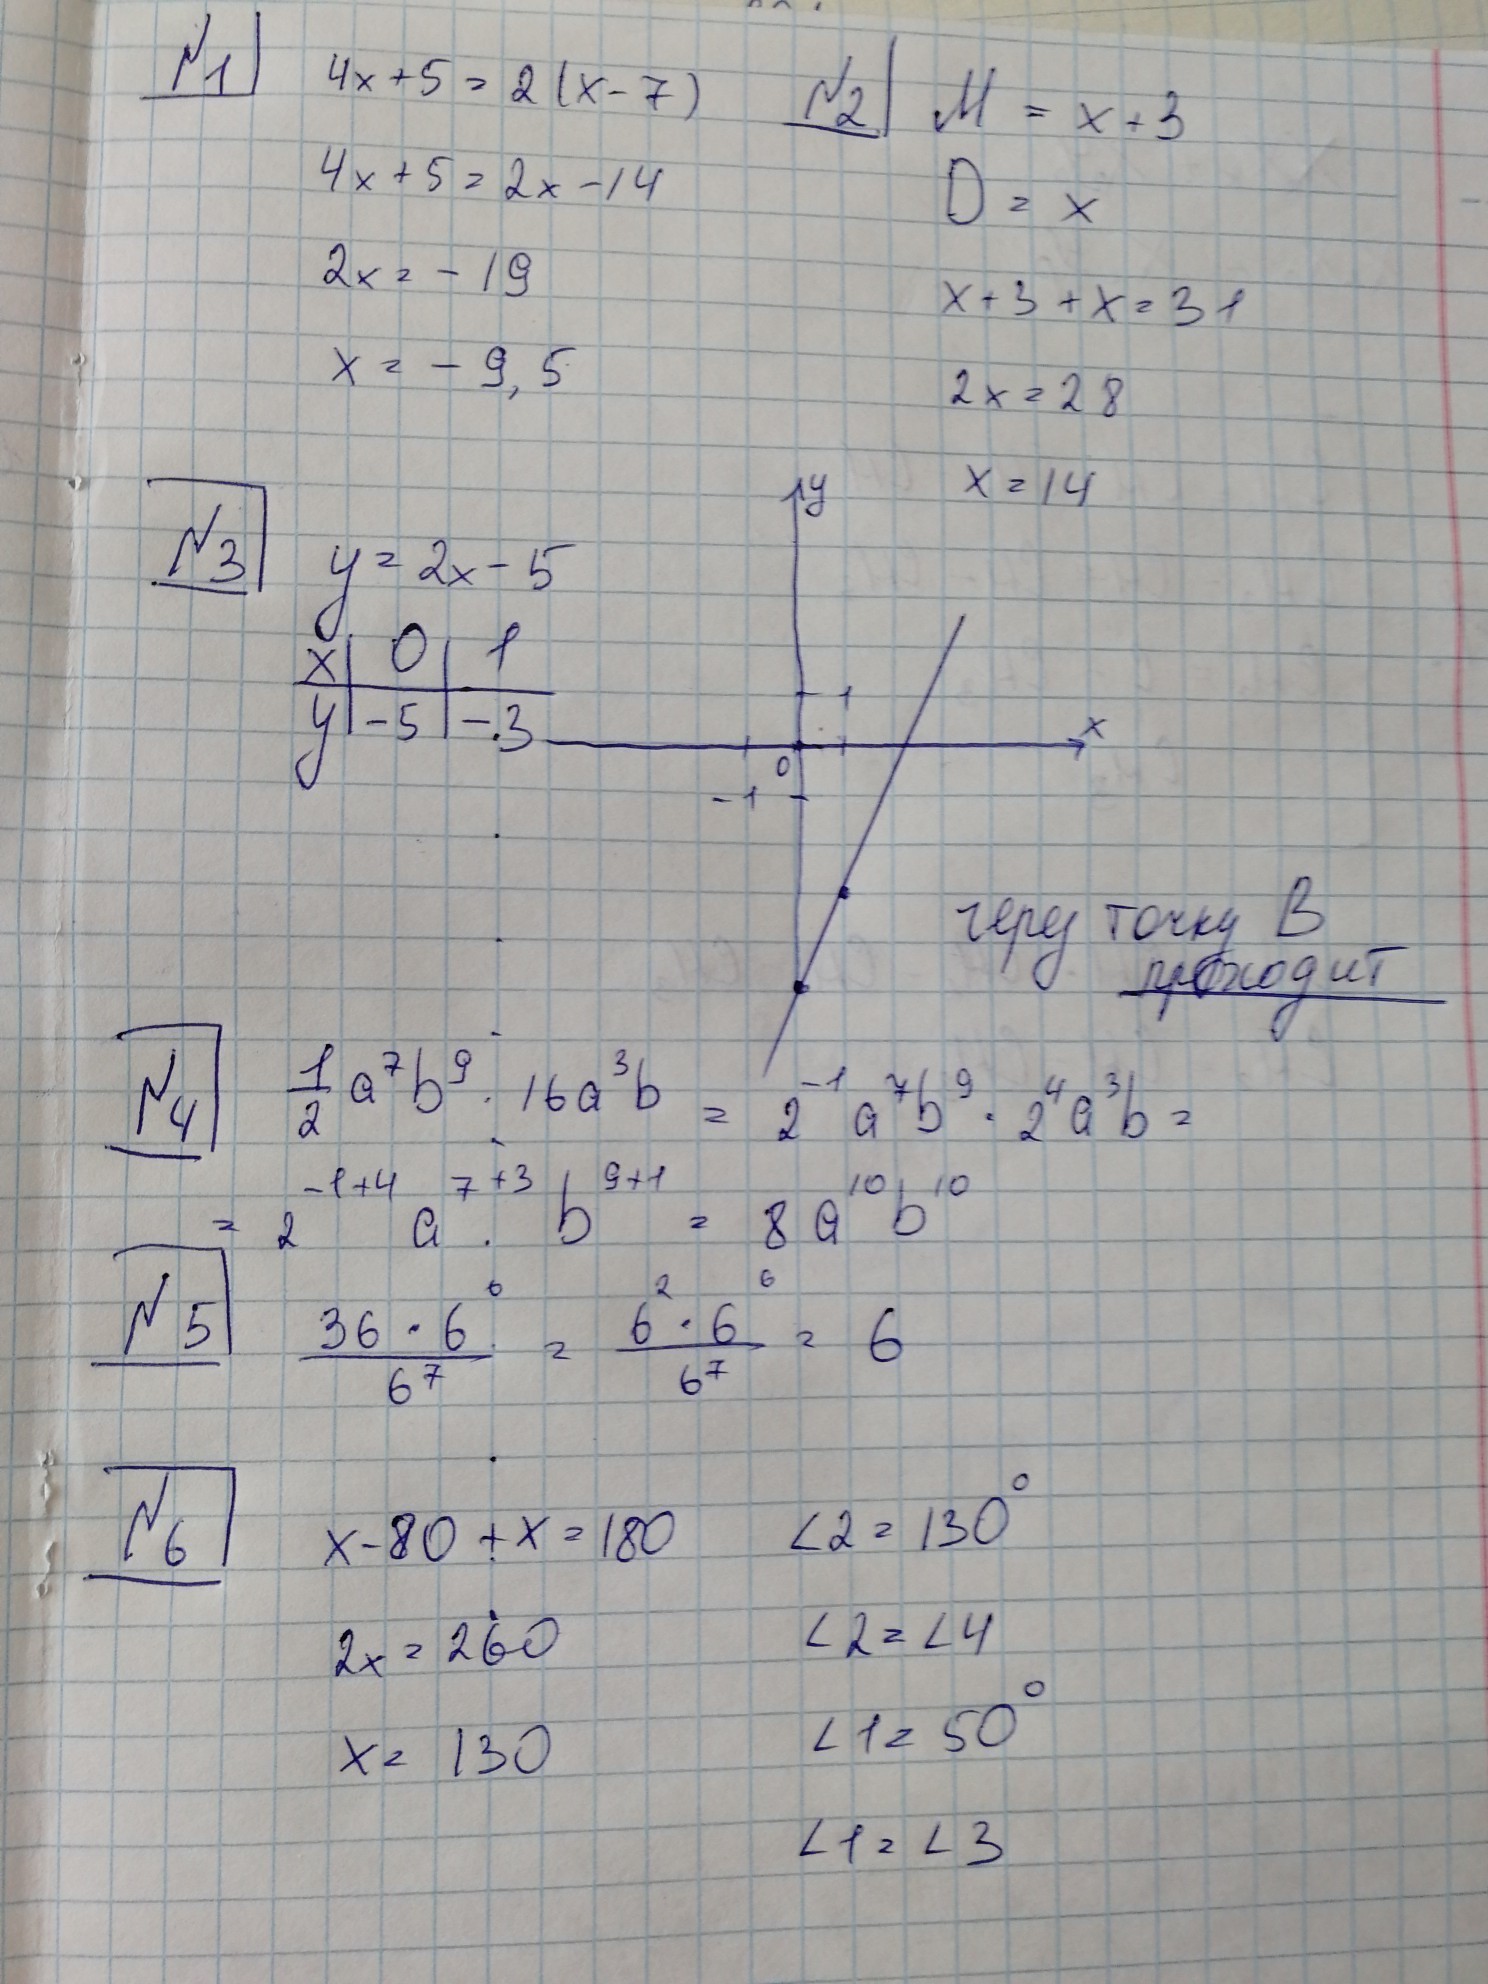 №1
4x+5=2(x-7)
4x+5=2x-14
2x=-19
x=-9,5
№2
M=x+3
D=x
x+3+x=31
2x=28
x=14
№3
y=2x-5
x | 0 | 1
y | -5 | -3
y
1
x
0
-1
через точку B
проходит
№4
1/2 a⁷b⁹ · 16a³b = 2⁻¹a⁷b⁹ · 2⁴a³b =
= 2⁻¹⁺⁴ a⁷⁺³ · b⁹⁺¹ = 8a¹⁰b¹⁰
№5
36·6⁶/6⁷ = 6²·6⁶/6⁷ = 6
№6
x-80+x=180
2x=260
x=130
∠2=130°
∠2=∠4
∠1=50°
∠1=∠3